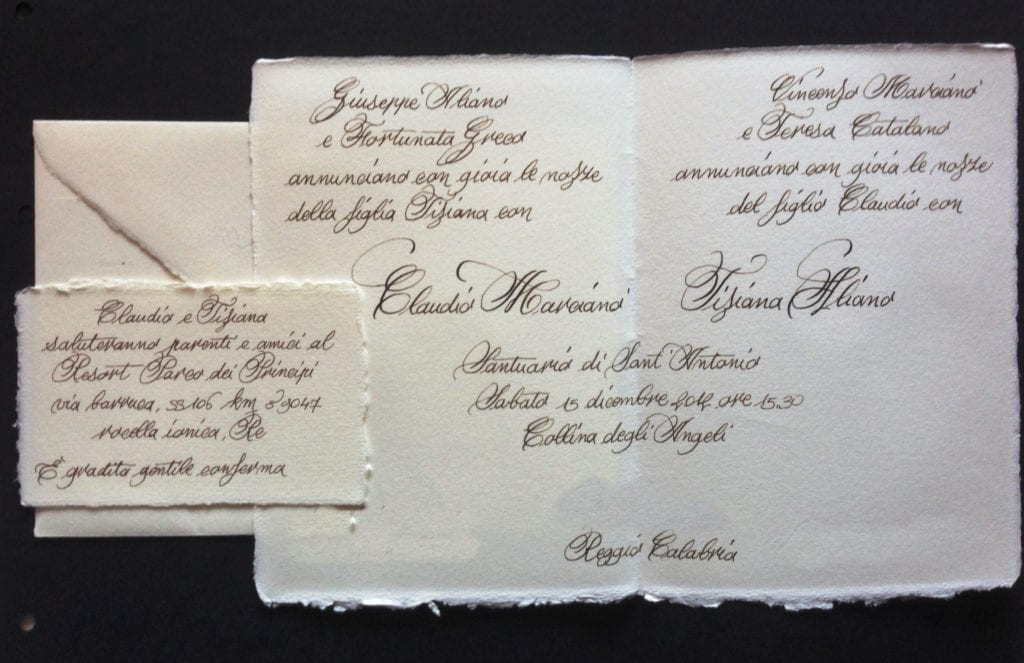 Giuseppe Aliano
e Fortunata Greco
annunciano con gioia le nozze
della figlia Tiziana con
Claudio Marciano
Vincenzo Marciano
e Teresa Catalano
annunciano con gioia le nozze
del figlio Claudio con
Tiziana Aliano
Santuario di Sant'Antonio
Sabato 15 dicembre 2012, ore 15.30
Collina degli Angeli
Reggio Calabria
Claudio e Tiziana
saluteranno parenti e amici al
Resort Parco dei Principi
via barruca, SS 106 km 23047
rocella ionica, Rc
È gradita gentile conferma